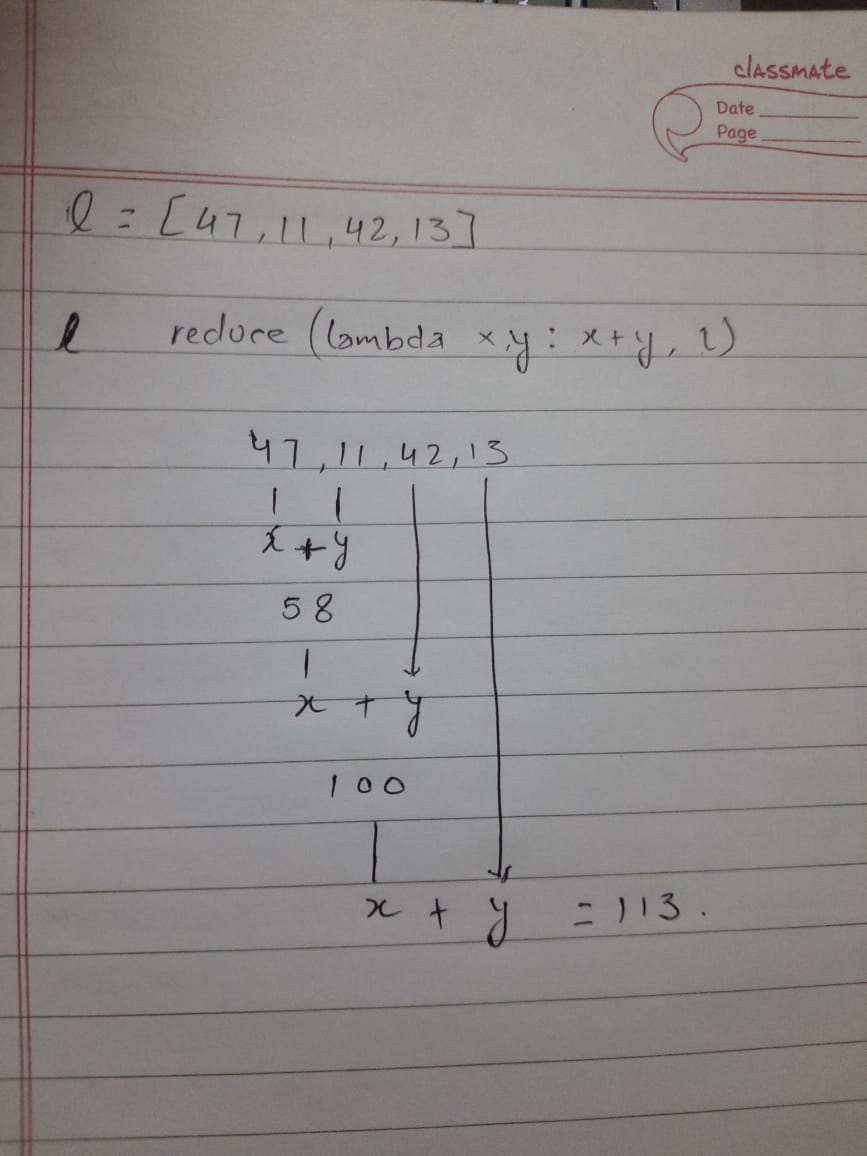 classmate
Date
Page
l = [47, 11, 42, 13]
l reduce (lambda x,y : x+y, l)
47, 11, 42, 13
x + y
58
x + y
100
x + y = 113.